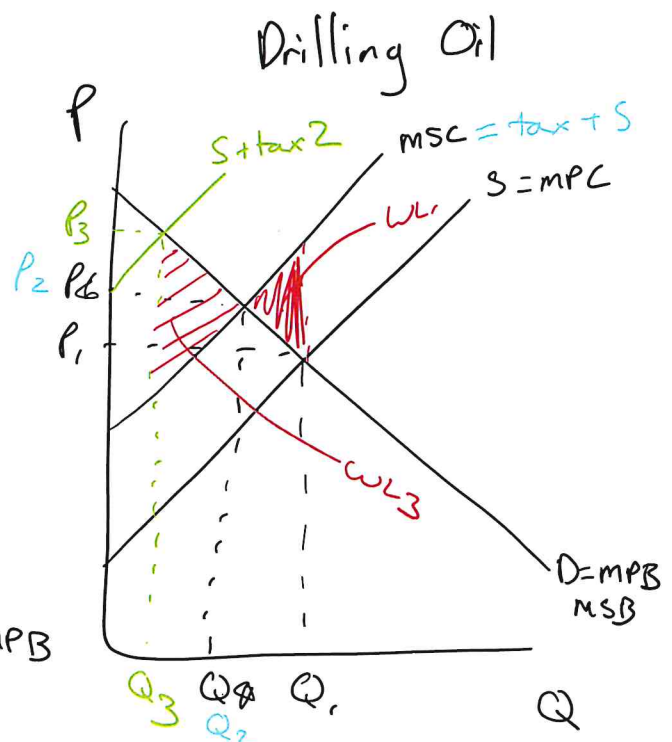 Drilling Oil
P
S+tax2
MSC = tax + S
S=MPC
WL1
P3
P2
P1
WL3
D=MPB
MSB
MPB
Q3 Q1
Q2
Q